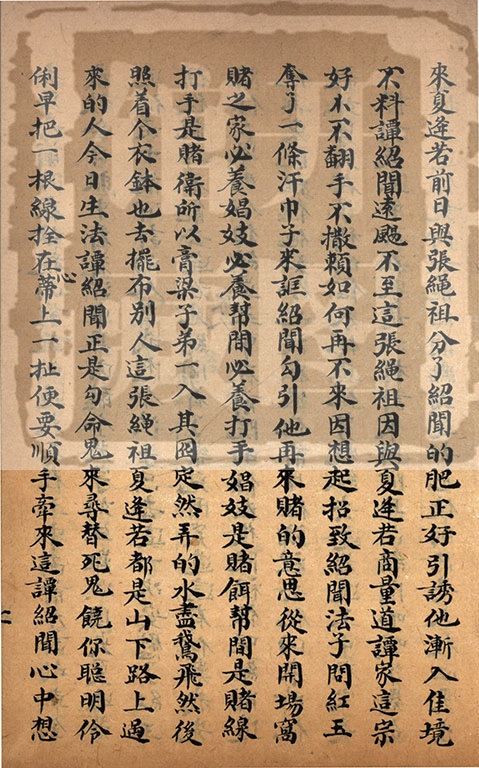 來夏逄若前日與張繩祖分了紹聞的肥正好引誘他漸入佳境
不料譚紹聞遠颺不至這張繩祖因與夏逄若商量道譚家這宗
好小不翻手不撒賴如何再不來因想起招致紹聞法子問紅玉
奪了一條汗巾子來誆紹聞勾引他再來賭的意思從來開場窩
賭之家必養娼妓必養幫閒必養打手娼妓是賭餌幫閒是賭線
打手是賭衛所以膏粱子弟一入其囮定然弄的水盡鵞飛然後
照着个衣鉢也去擺布別人這張繩祖夏逄若都是山下路上過
來的人今日生法譚紹聞正是勾命鬼來尋替死鬼饒你聰明伶
俐早把一根線拴在心蒂上一扯便要順手牽來這譚紹聞心中想